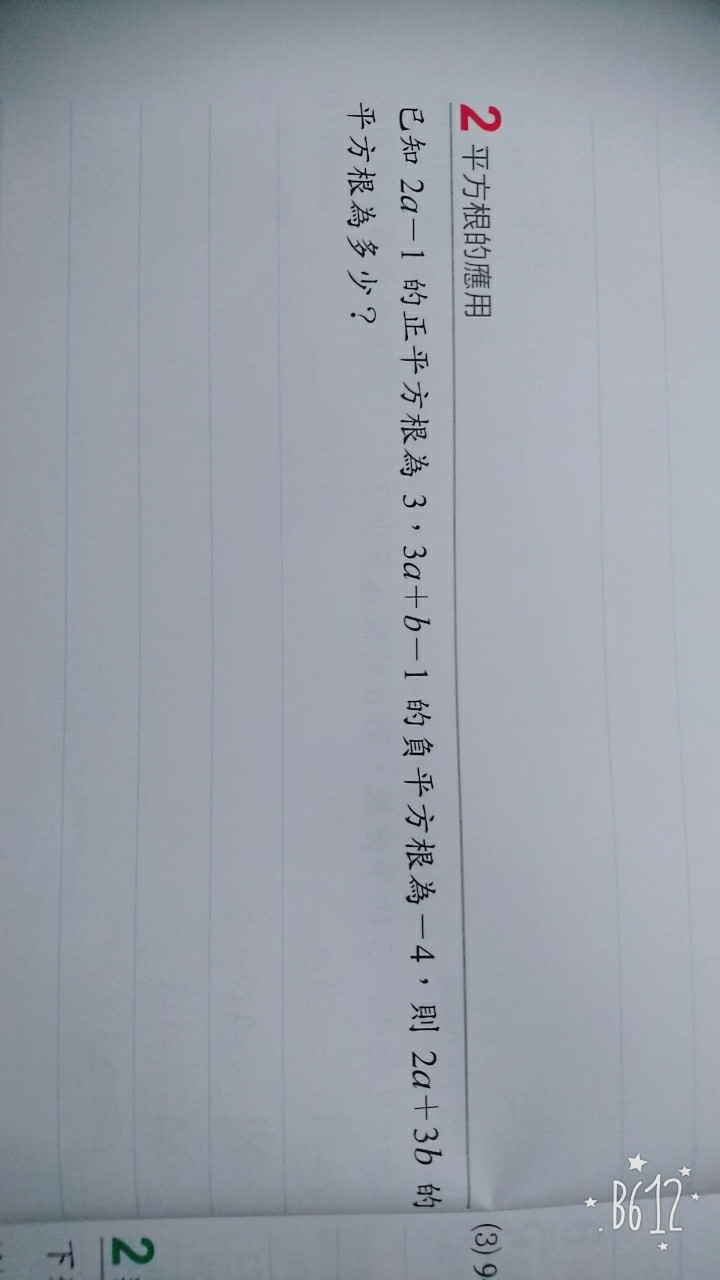 2 平方根的應用
已知 2a－1 的正平方根為 3，3a＋b－1 的負平方根為－4，則 2a＋3b 的
平方根為多少？
(3) 9
2
下
B612